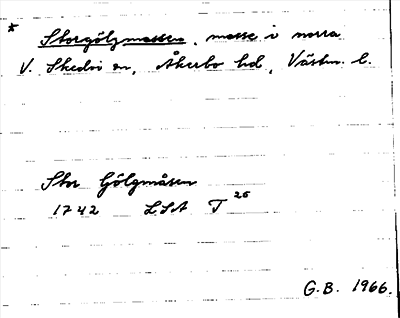 * Storgölgmossen, mosse i norra
V. Skedvi sn, Åkerbo hd, Västm. l.
Stor Gölgmåsen
1742 LSA T 26
G.B. 1966.